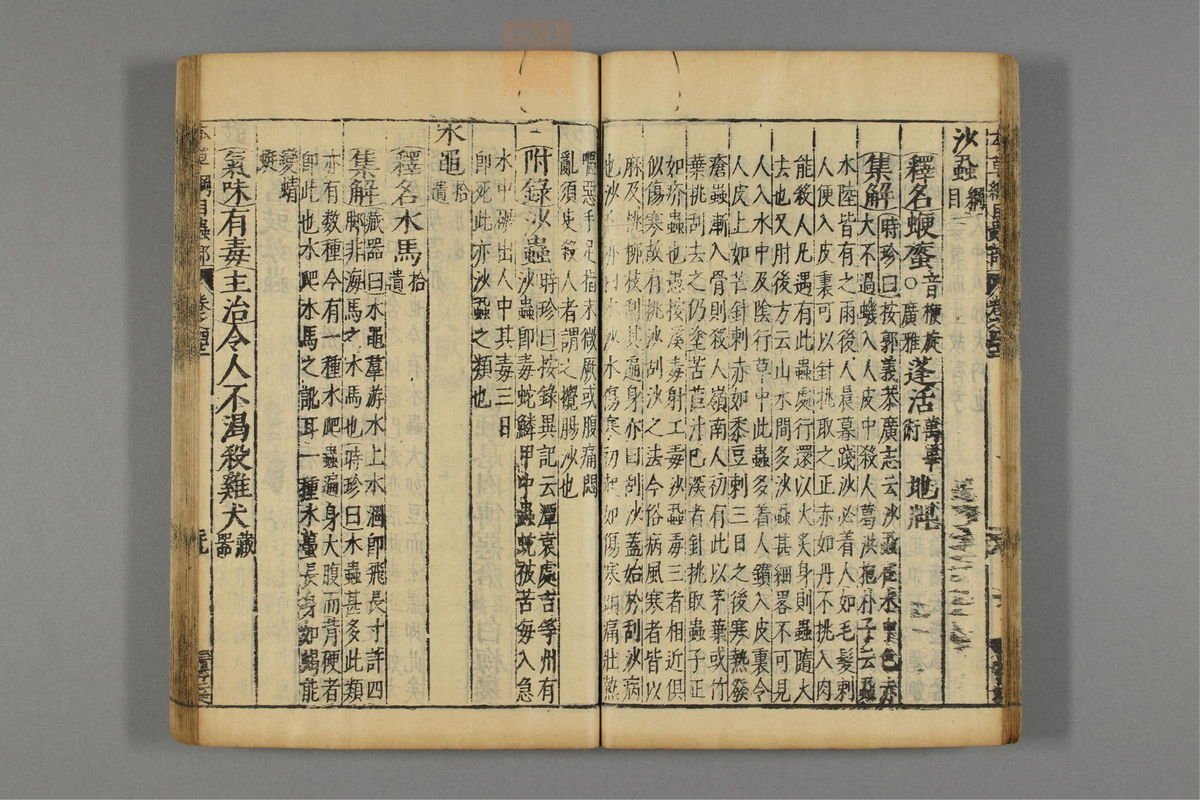 沙蝨綱目
釋名蝏𧍥音楩旋○廣雅蓬活萬畢術地脾
集解時珍曰按郭義恭廣志云沙蝨在水中色赤
大不過蟣入人皮中殺人葛洪抱朴子云蝨
水陸皆有之雨後人晨暮踐沙必着人如毛髮刺
人便入皮裏可以針挑取之正赤如丹不挑入肉
能殺人凡遇有此蟲處行還以火炙身則蟲隨火
去也又肘後方云山水間多沙蝨甚細畧不可見
人入水中及陰行草中此蟲多着人鑽入皮裏令
人皮上如芒針刺赤如黍豆刺三日之後寒熱發
瘡蟲漸入骨則殺人嶺南人初有此以茅葉或竹
葉挑刮去之仍塗苦苣汁已深者針挑取蟲子正
如疥蟲也愚按溪毒射工毒沙蝨毒三者相近俱
似傷寒故有挑沙刮沙之法今俗病風寒者皆以
麻及桃柳枝刮其遍身亦曰刮沙蓋始於刮沙病
也沙病亦曰水沙水傷寒初起如傷寒頭痛壯熱
嘔惡手足指末微厥或腹痛悶
亂須臾殺人者謂之攪腸沙也
附錄沙蟲時珍曰按錄異記云潭袁處吉等州有
沙蟲即毒蛇鱗甲中蟲蛇被苦每入急
水中碾出人中其毒三日
即死此亦沙蝨之類也
水黽拾遺
釋名水馬拾遺
集解藏器曰水黽羣游水上水涸即飛長寸許四
脚非海馬之水馬也時珍曰水蟲甚多此類
亦有數種今有一種水爬蟲遍身大腹而背硬者
即此也水爬水馬之訛耳一種水蠆長身如蝎能
變蜻蜓
氣味有毒主治令人不渴殺雞犬藏器
本草綱目蟲部